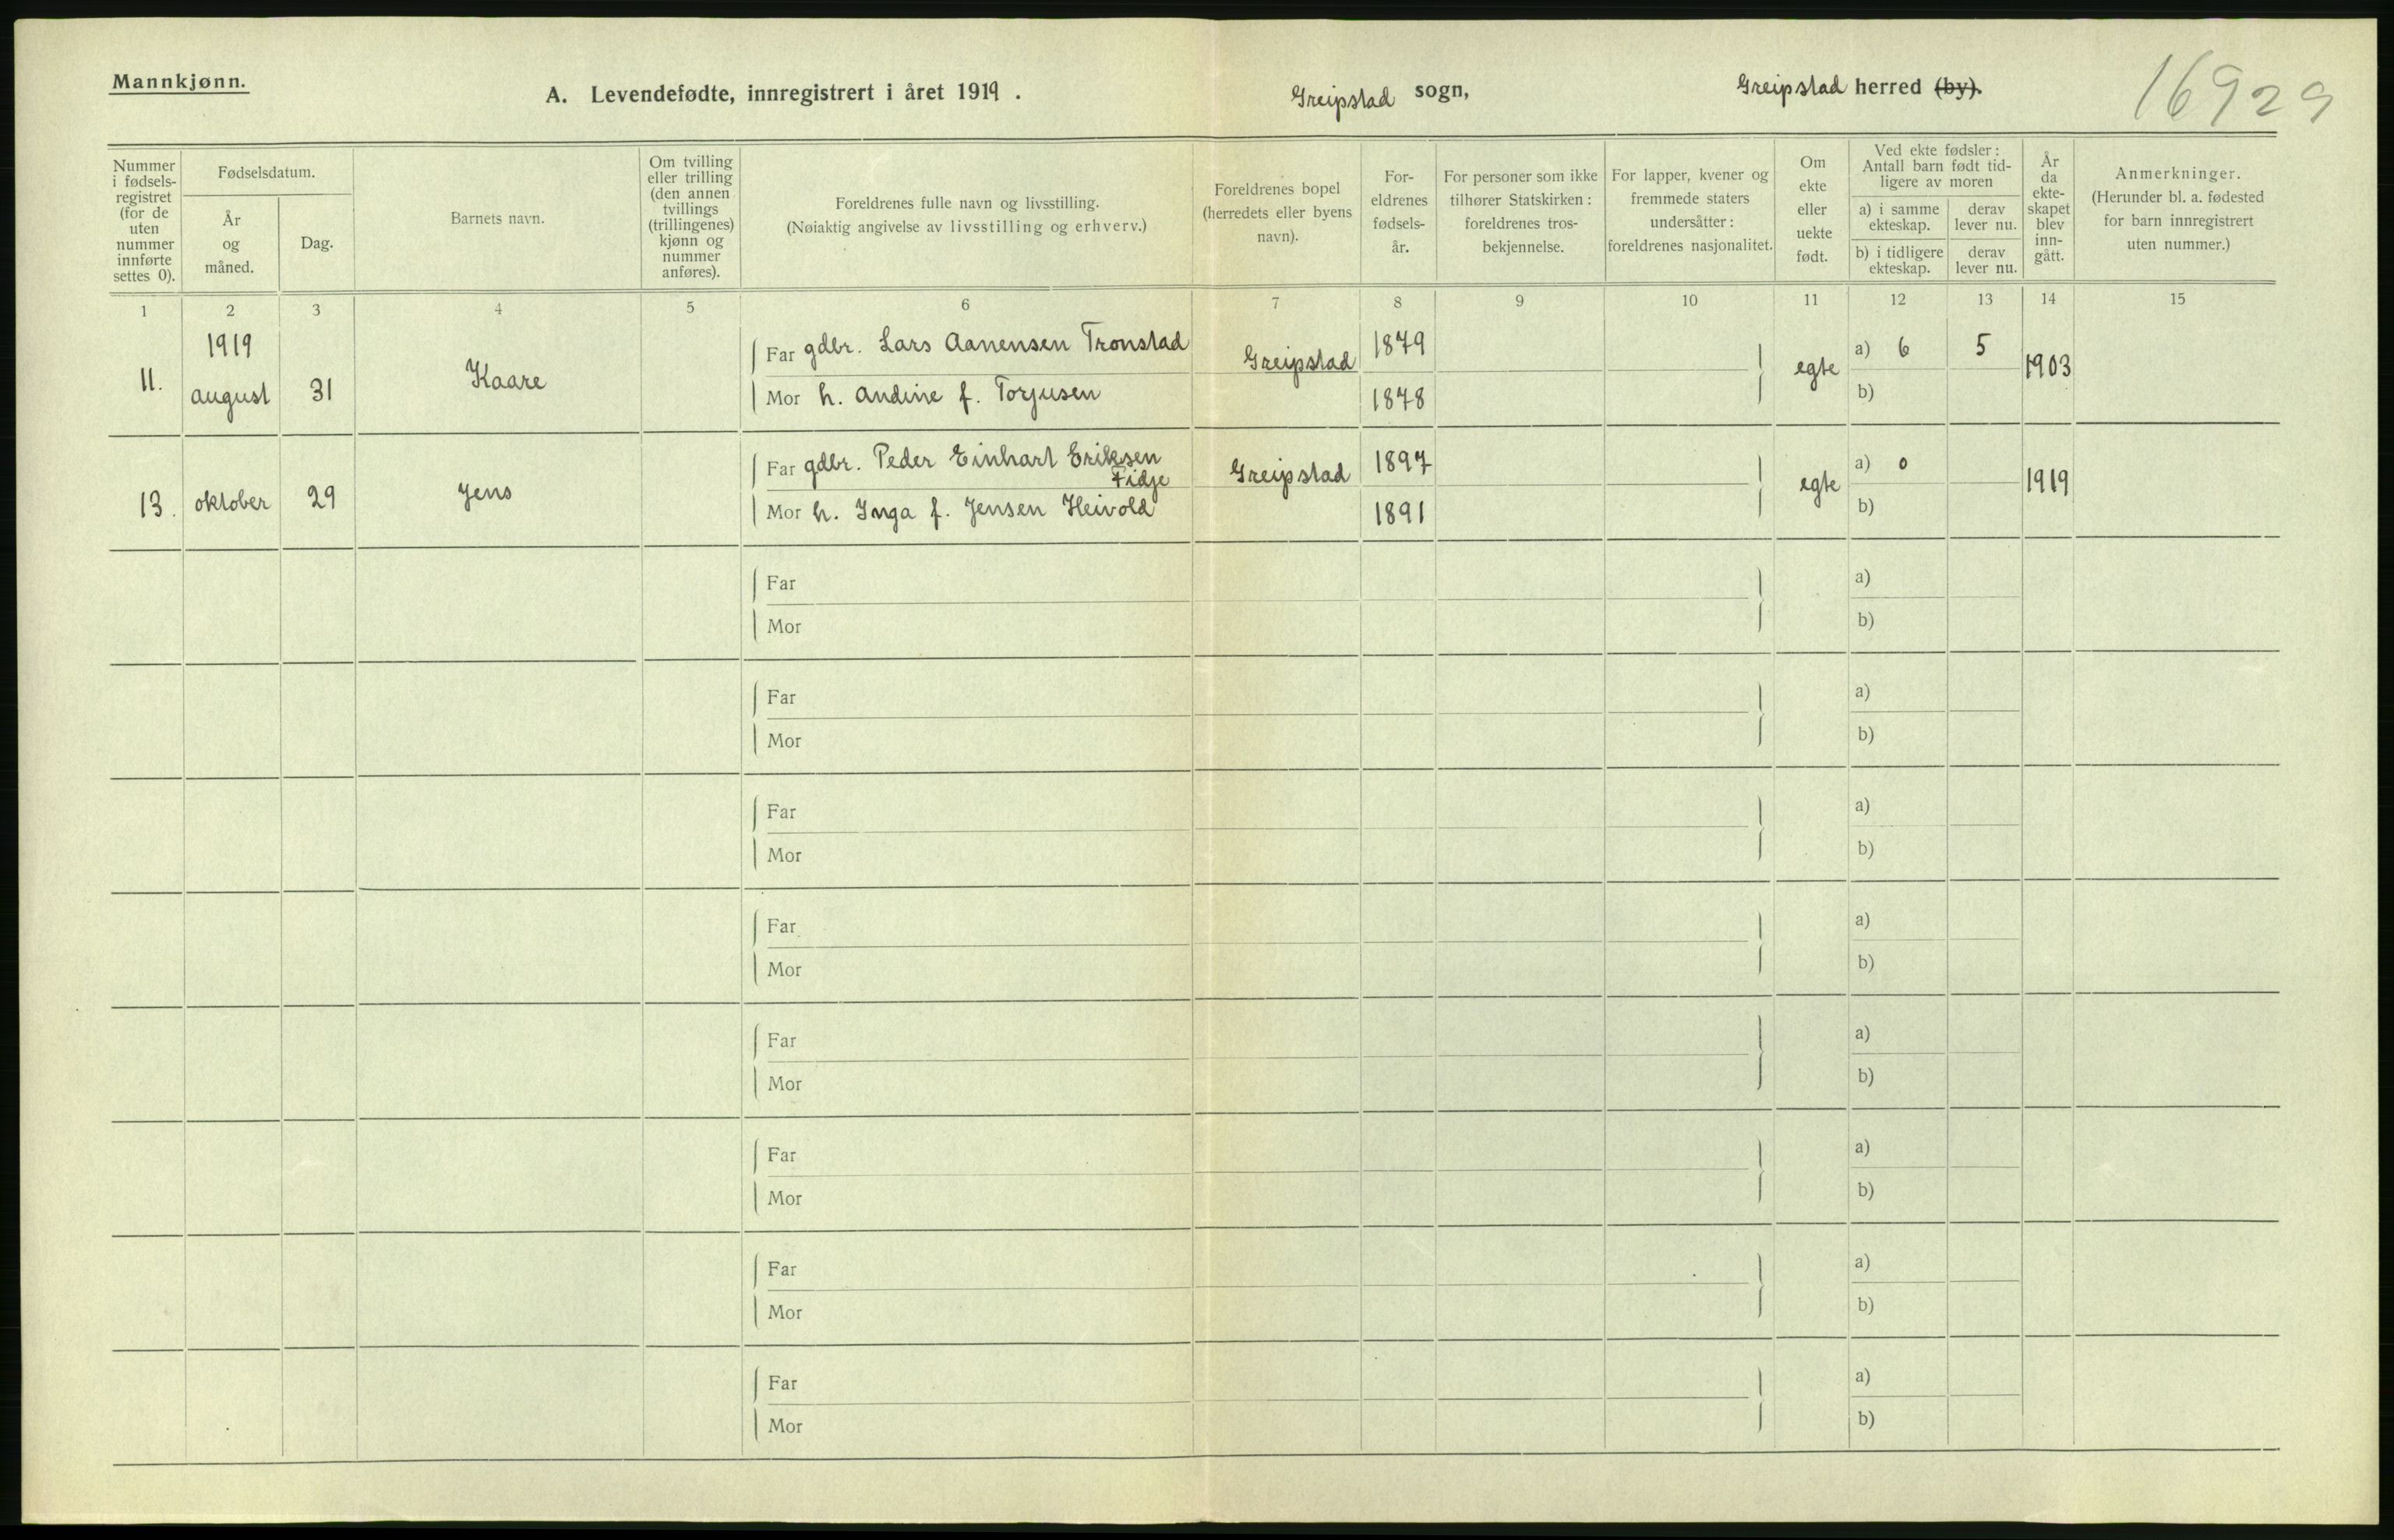 Mannkjønn.
A. Levendefødte, innregistrert i året 1919 .
Greipstad sogn,
Greipstad herred (by).
16929
Nummer
i fødsels-
registret
(for de
uten
nummer
innførte
settes 0).
Fødselsdatum.
År
og
måned.
Dag.
Barnets navn.
Om tvilling
eller trilling
(den annen
tvillings
(trillingenes)
kjønn og
nummer
anføres).
Foreldrenes fulle navn og livsstilling.
(Nøiaktig angivelse av livsstilling og erhverv.)
Foreldrenes bopel
(herredets eller byens
navn).
For-
eldrenes
fødsels-
år.
For personer som ikke
tilhører Statskirken:
foreldrenes tros-
bekjennelse.
For lapper, kvener og
fremmede staters
undersåtter:
foreldrenes nasjonalitet.
Om
ekte
eller
uekte
født.
Ved ekte fødsler:
Antall barn født tid-
ligere av moren
a) i samme
ekteskap.
derav
lever nu.
b) i tidligere
ekteskap.
derav
lever nu.
År
da
ekte-
skapet
blev
inn-
gått.
Anmerkninger.
(Herunder bl. a. fødested
for barn innregistrert
uten nummer.)
1 2 3 4 5 6 7 8 9 10 11 12 13 14 15
11.
1919
august
31
Kaare
Far gdbr. Lars Aanensen Tronstad
Mor h. Andine f. Torjusen
Greipstad
1879
1878
egte
a) 6
5
b)
1903
13.
oktober
29
Jens
Far gdbr. Peder Einhart Eriksen
Fidje
Mor h. Inga f. Jensen Heivold
Greipstad
1897
1891
egte
a) 0
b)
1919
Far a)
Mor b)
Far a)
Mor b)
Far a)
Mor b)
Far a)
Mor b)
Far a)
Mor b)
Far a)
Mor b)
Far a)
Mor b)
Far a)
Mor b)